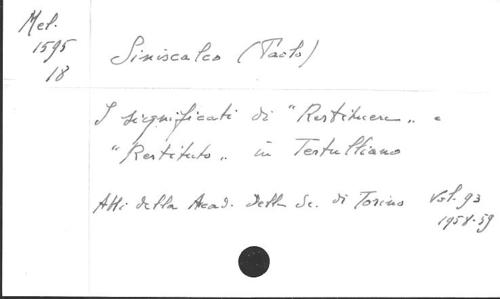 Mel.
1595
18
Siniscalco (Paolo)
I significati di "Restituere" e
"Restituto" in Tertulliano
Atti della Acad. delle Sc. di Torino Vol. 93
1958-59